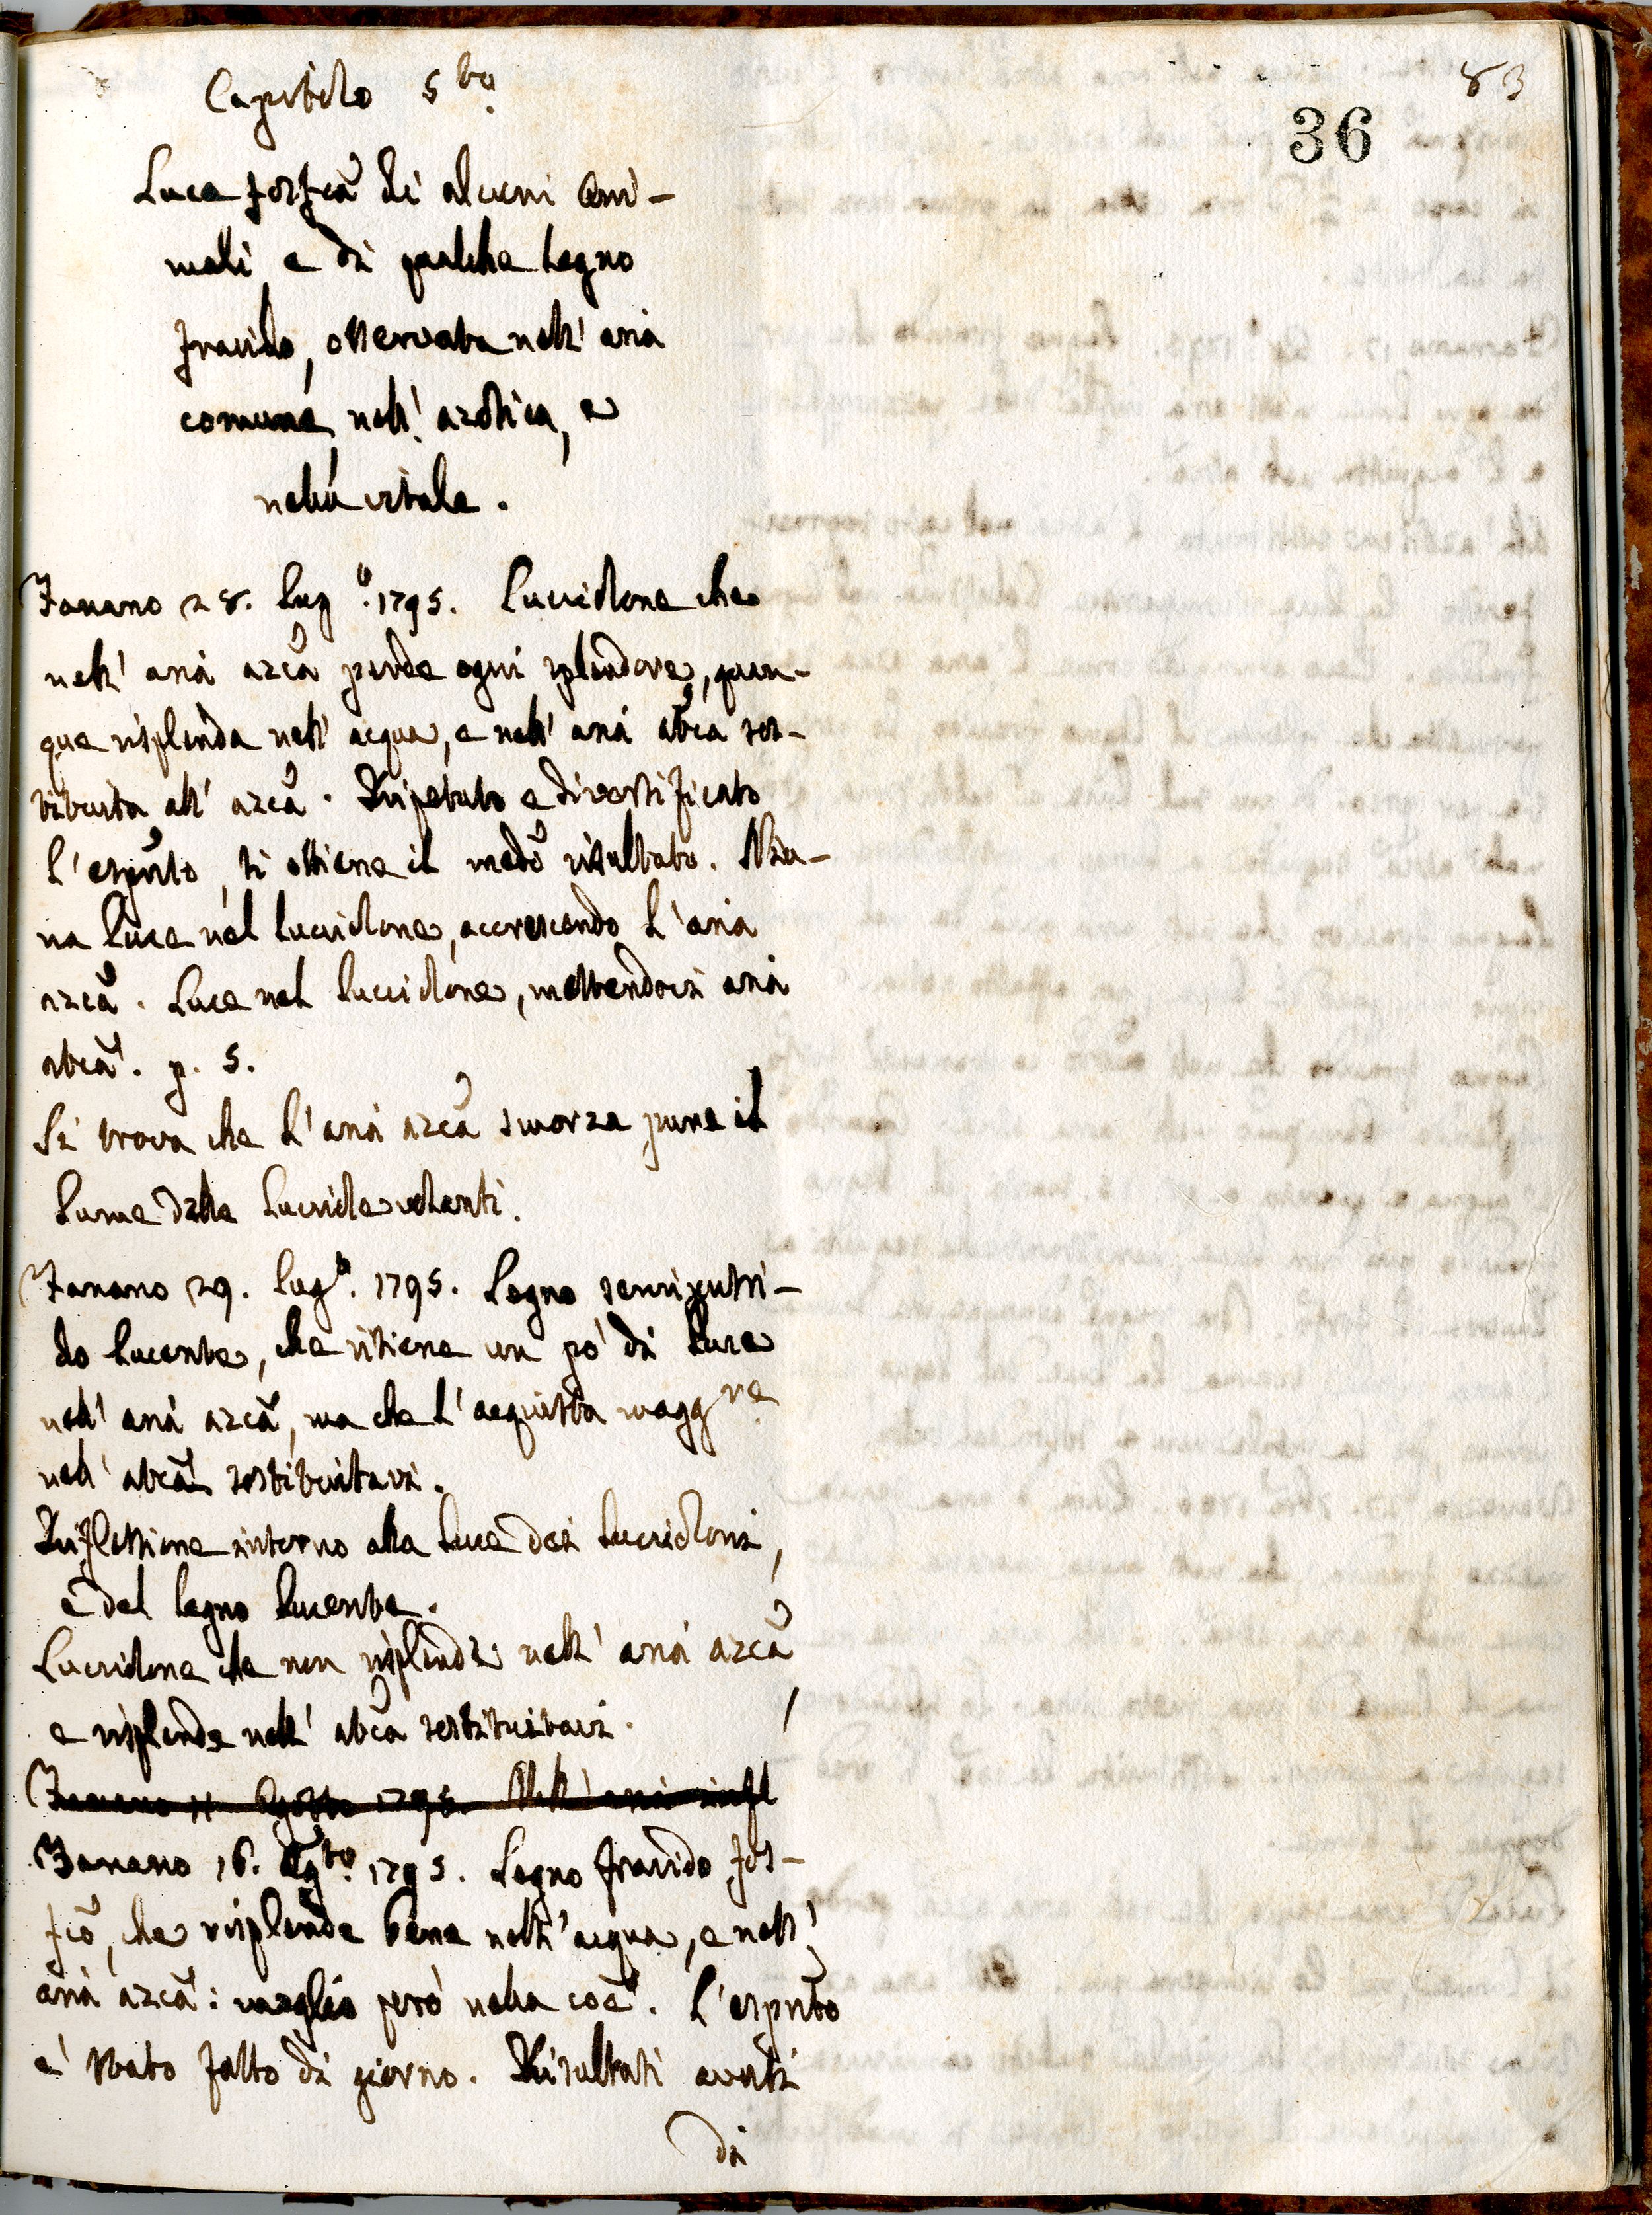 83
36
Capitolo 5.to
Luce fosfca di alcuni Ani-
mali, e di qualche legno
fracido, osservata nell' aria
comune, nell' azotica, e
nella vitale.
Fanano 28. Lug.o 1795. Luccidone che
nell' aria azca perde ogni splendore, quan-
que risplenda nell' acqua, e nell' aria atca sos-
tituita all' azca. Ripetuto e diversificato
l' espmto, si ottiene il medo risultato. Niu-
na luce nel luccidone, accrescendo l' aria
azca. Luce nel luccidone, mettendovi aria
atca. p. 5.
Si trova che l' aria azca smorza pure il
lume delle Lucciole volanti.
Fanano 29. Lug.o 1795. Legno semiputri-
do lucente, che ritiene un pò di luce
nell' aria azca, ma che l' acquista magg.re
nell' atca sostituitavi.
Riflessione intorno alla luce dei Luccidoni,
e del legno lucente.
Luccidone che non risplende nell' aria azca,
e risplende nell' atca sostituitavi.
Fanano 11 Agosto 1795. Nell' aria infl
Fanano 16. Ag.to 1795. Legno fracido fos-
fco, che risplende bene nell' acqua, e nell'
aria azca: meglio però nella coe. L' espmto
e' stato fatto di giorno. Risultati avuti
di